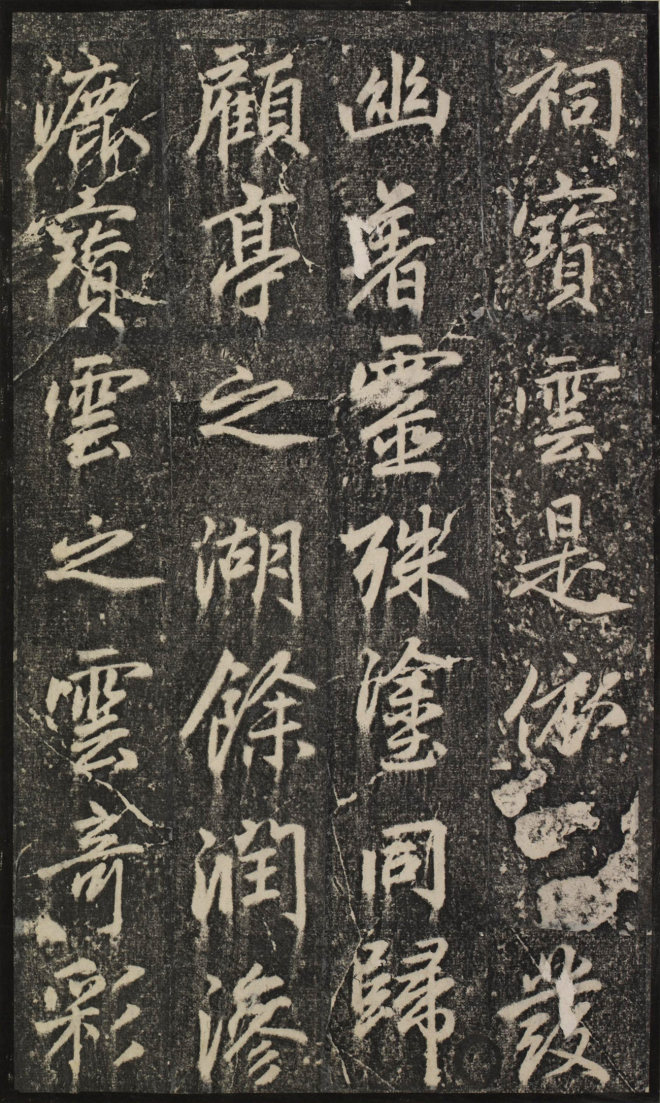 祠寶雲是依發
幽著靈殊塗同歸
顧亭之湖餘潤滲
漉寶雲之雲奇彩